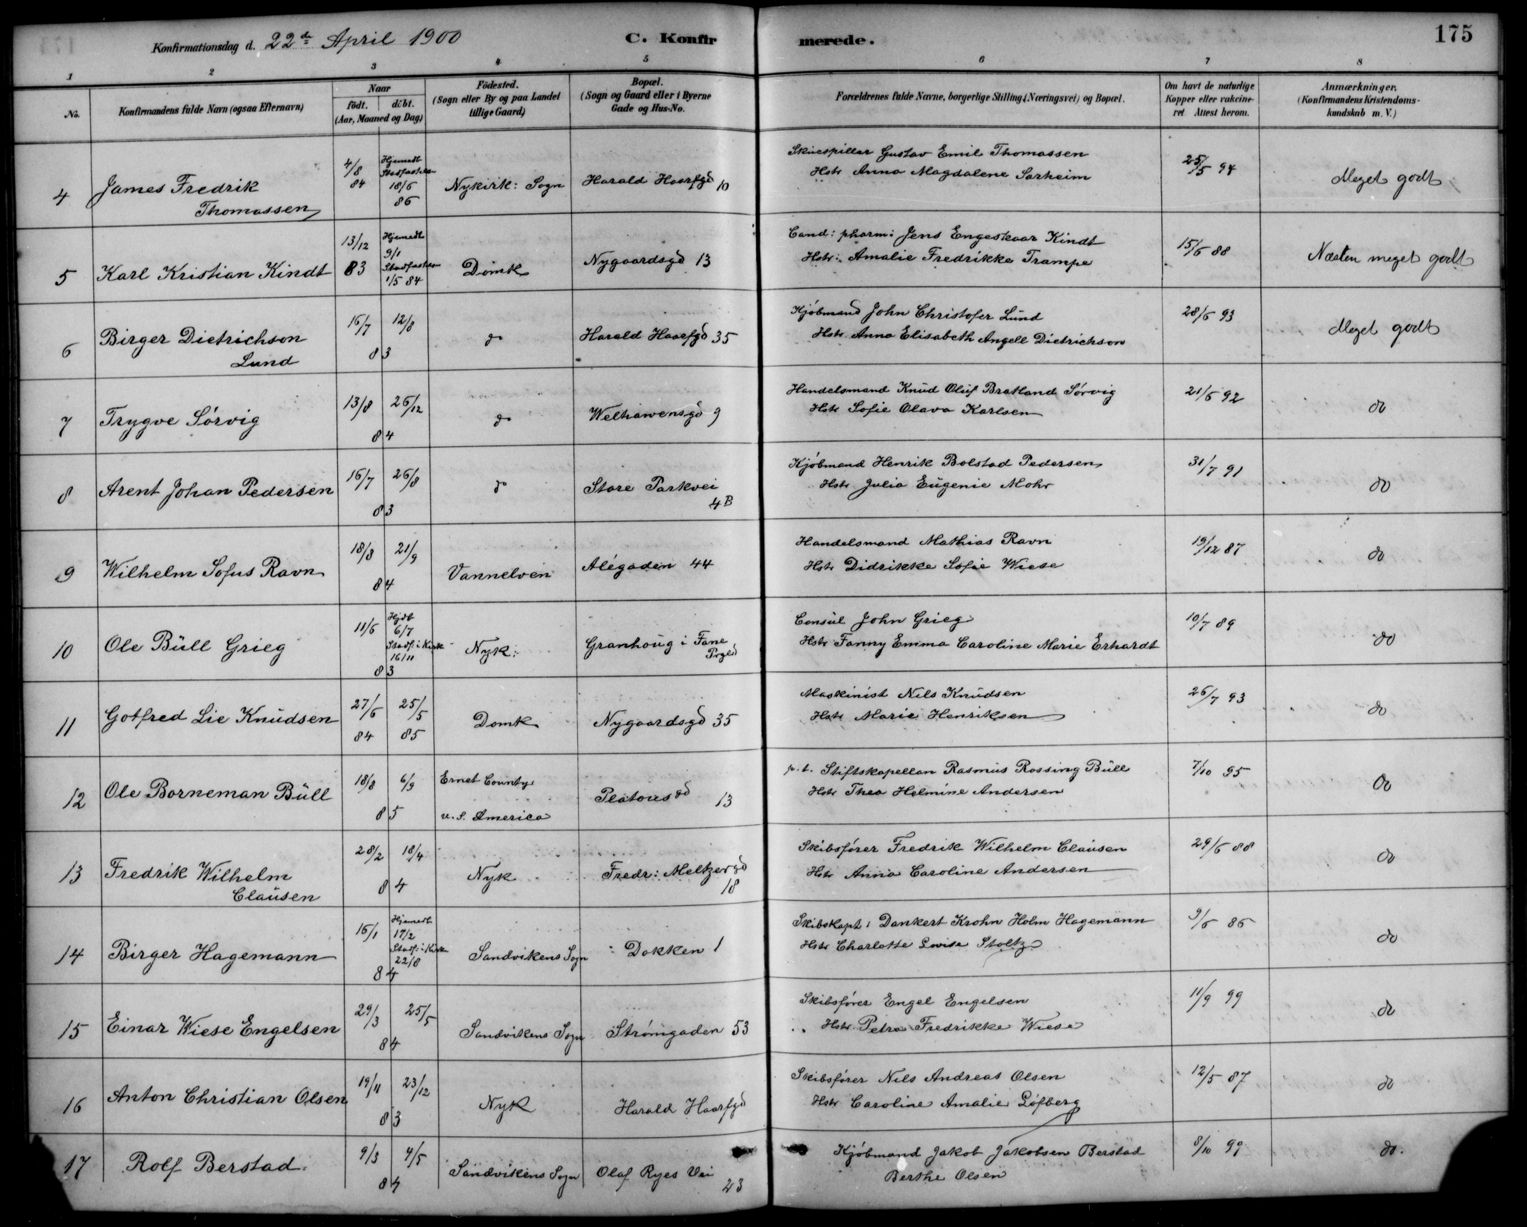 Konfirmationsdag d. 22de April 1900 C. Konfirmerede. 175
1 2 3 4 5 6 7 8
No. Konfirmandens fulde Navn (ogsaa Efternavn) Naar født. døbt. (Aar, Maaned og Dag) Fødested. (Sogn eller By og paa Landet tillige Gaard) Bopæl. (Sogn og Gaard eller i Byerne Gade og Hus-No.) Forældrenes fulde Navne, borgerlige Stilling (Næringsvei) og Bopæl. Om havt de naturlige Kopper eller vaccineret. Attest herom. Anmærkninger. (Konfirmandens Kristendomskundskab m. V.)
4 James Fredrik Thomassen 4/8 84 Hjemedt 18/6 86 Nykirk: Sogn Harald Haarfgd 10
Skuespiller Gustav Emil Thomassen
Hstr Anna Magdalene Sarheim 25/5 94 Meget godt
5 Karl Kristian Kindt 13/12 83 Hjemedt 9/1 1/5 84 Domk Nygaardsgd 13
Cand: pharm: Jens Engeskaar Kindt
Hstr: Amalie Fredrikke Trampe 15/6 88 Næsten meget godt
6 Birger Dietrichson Lund 16/7 12/8 83 do Harald Haarfgd 35
Kjøbmand John Christofer Lund
Hstr Anna Elisabeth Angell Dietrichson 28/6 93 Meget godt
7 Trygve Sørvig 13/8 26/12 84 do Welhavensgd 9
Handelsmand Knud Oluf Bratland Sørvig
Hstr Sofie Olava Karlsen 21/6 92 do
8 Arent Johan Pedersen 16/7 26/8 83 do Store Parkvei 4B
Kjøbmand Henrik Bolstad Pedersen
Hstr Julia Eugenie Mohr 31/7 91 do
9 Wilhelm Sofus Ravn 18/8 21/9 84 Vannelven Alégaden 44
Handelsmand Mathias Ravn
Hstr Didrikke Sofie Wiese 19/12 87 do
10 Ole Büll Grieg 11/6 Hjdt 6/7 Stadf. i Kirk 16/11 83 Nyk: Granhoug i Fane Prgld
Consul John Grieg
Hstr Fanny Emma Caroline Marie Erhardt 10/7 89 do
11 Gotfred Lie Knudsen 27/6 84 25/5 85 Domk Nygaardsgd 35
Maskinist Nils Knudsen
Hstr Marie Henriksen 26/7 93 do
12 Ole Borneman Büll 18/8 6/9 85 Ernet County U.S. America Platousgd 13
p.t. Stiftskapellan Rasmus Rossing Büll
Hstr Thea Helmine Andersen 7/10 95 do
13 Fredrik Wilhelm Clausen 28/2 18/4 84 Nyk Fredr: Meltzersgd 18
Skibsfører Fredrik Wilhelm Clausen
Hstr Anna Caroline Andersen 29/6 88 do
14 Birger Hagemann 16/1 Hjemedt 17/2 Stadf. i Kirk 22/8 84 Sandvikens Sogn Dokken 1
Skibskapt: Dankert Krohn Holm Hagemann
Hstr Charlotte Lovise Stoltz 9/6 86 do
15 Einar Wiese Engelsen 29/3 25/5 84 Sandvikens Sogn Strømgaden 53
Skibsfører Engel Engelsen
Hstr Petra Fredrikke Wiese 11/9 99 do
16 Anton Christian Olsen 19/11 23/12 83 Nyk Harald Haarfgd
Skibsfører Nils Andreas Olsen
Hstr Caroline Amalie Löfberg 12/5 87 do
17 Rolf Berstad 9/3 4/5 84 Sandvikens Sogn Olaf Ryes Vei 23
Kjøbmand Jakob Jakobsen Berstad
Berthe Olsen 8/10 99 do.